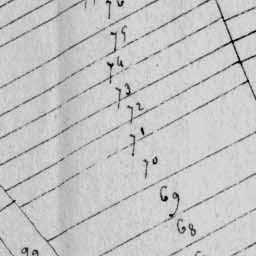 76
75
74
73
72
71
70
69
68
99